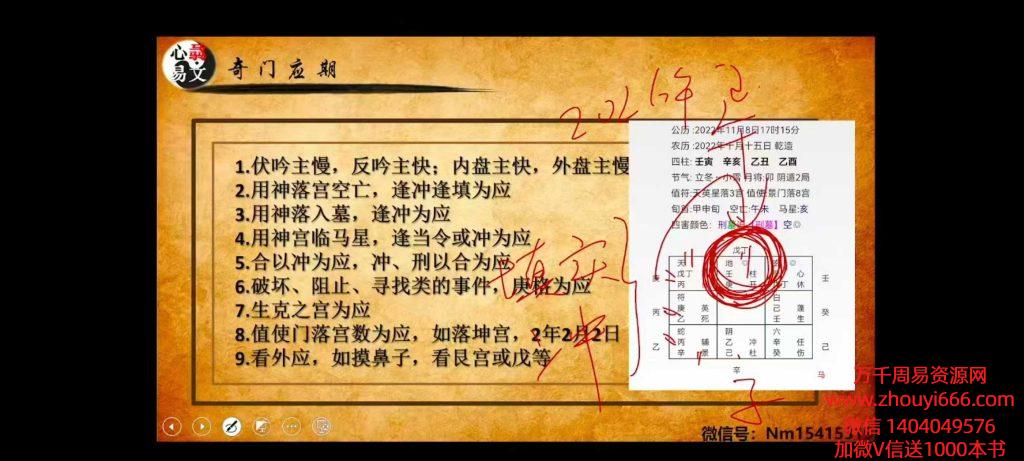 心易
易文
奇门应期
1.伏吟主慢，反吟主快；内盘主快，外盘主慢
2.用神落宫空亡，逢冲逢填为应
3.用神落入墓，逢冲为应
4.用神宫临马星，逢当令或冲为应
5.合以冲为应，冲、刑以合为应
6.破坏、阻止、寻找类的事件，庚格为应
7.生克之宫为应
8.值使门落宫数为应，如落坤宫，2年2月2日
9.看外应，如摸鼻子，看艮宫或戊等
2026年
填实
冲
午
子
公历:2022年11月8日17时15分
农历:2022年十月十五日 乾造
四柱:壬寅 辛亥 乙丑 乙酉
节气:立冬~小雪 月将:卯 阴遁2局
值符:天英星落3宫 值使:景门落8宫
旬首:甲申旬 空亡:午未 马星:亥
四害颜色: 刑 墓 【刑墓】 空◎
戊丁
庚 天 地 壬
戊丁 壬 柱 心
丙 庚 开 丁 休
丙 符 白 癸
庚 英 己 蓬
乙 死 壬 生
乙 蛇 阴 六 己
丙 辅 乙 冲 辛 任
辛 景 己 杜 癸 伤
辛 马
微信号：Nm15415
万千周易资源网
www.zhouyi666.com
微信 1404049576
加微V信送1000本书